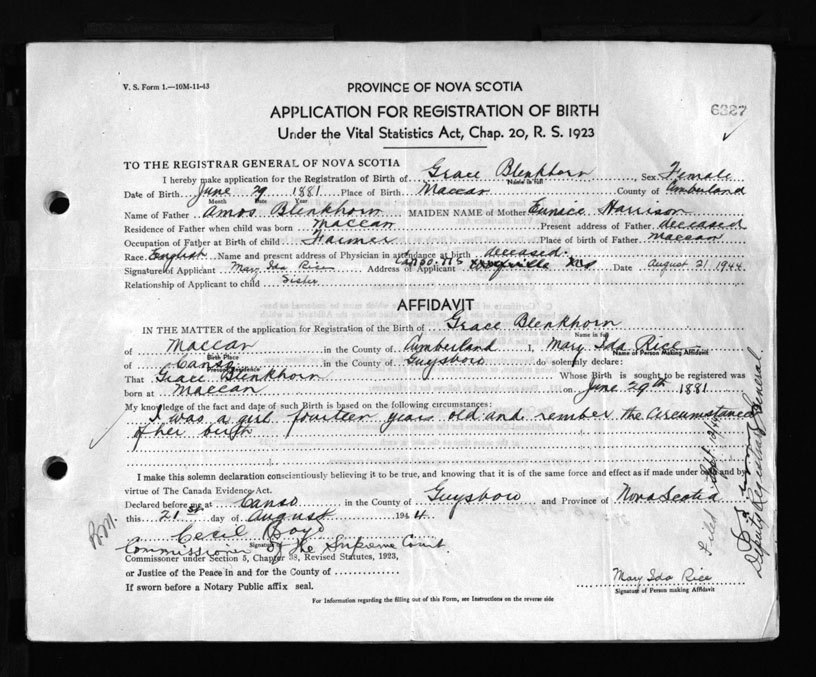 V. S. Form 1.—10M-11-43
PROVINCE OF NOVA SCOTIA
APPLICATION FOR REGISTRATION OF BIRTH
6327
Under the Vital Statistics Act, Chap. 20, R. S. 1923
TO THE REGISTRAR GENERAL OF NOVA SCOTIA
I hereby make application for the Registration of Birth of Grace Blenkhorn, Sex Female
Name in full
Date of Birth June 29 1881 Place of Birth Maccan County of Cumberland
Month Date Year
Name of Father Amos Blenkhorn MAIDEN NAME of Mother Eunice Harrison
Residence of Father when child was born Maccan Present address of Father deceased
Occupation of Father at Birth of child Farmer Place of birth of Father Maccan
Race English Name and present address of Physician in attendance at birth deceased
Signature of Applicant Mary Ida Rice Address of Applicant Canso. N S Date August 21 1944
Relationship of Applicant to child Sister
AFFIDAVIT
IN THE MATTER of the application for Registration of the Birth of Grace Blenkhorn
Name in full
of Maccan in the County of Cumberland I, Mary Ida Rice
Birth Place Name of Person Making Affidavit
of Canso in the County of Guysboro do solemnly declare:
Present Residence
That Grace Blenkhorn Whose Birth is sought to be registered was
born at Maccan on June 29th 1881
My knowledge of the fact and date of such Birth is based on the following circumstances:
I was a girl fourteen years old and rember the Circumstances
of her birth
I make this solemn declaration conscientiously believing it to be true, and knowing that it is of the same force and effect as if made under oath and by
virtue of The Canada Evidence Act.
Declared before me at Canso in the County of Guysboro and Province of Nova Scotia
this 21st day of August 1944
Cecil Boyd
Signature
Commissioner of the Supreme Court
Commissioner under Section 5, Chapter 38, Revised Statutes, 1923,
or Justice of the Peace in and for the County of
If sworn before a Notary Public affix seal.
Mary Ida Rice
Signature of Person making Affidavit
For Information regarding the filling out of this Form, see Instructions on the reverse side
Filed Sept
Deputy Registrar General.